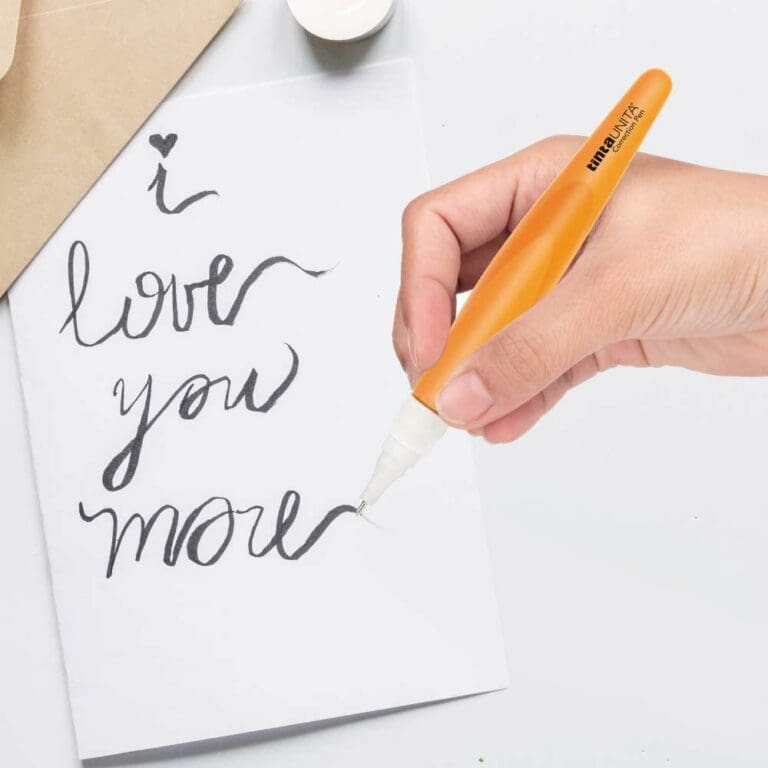 i
love
you
more
tintaUNITA®
Correction Pen